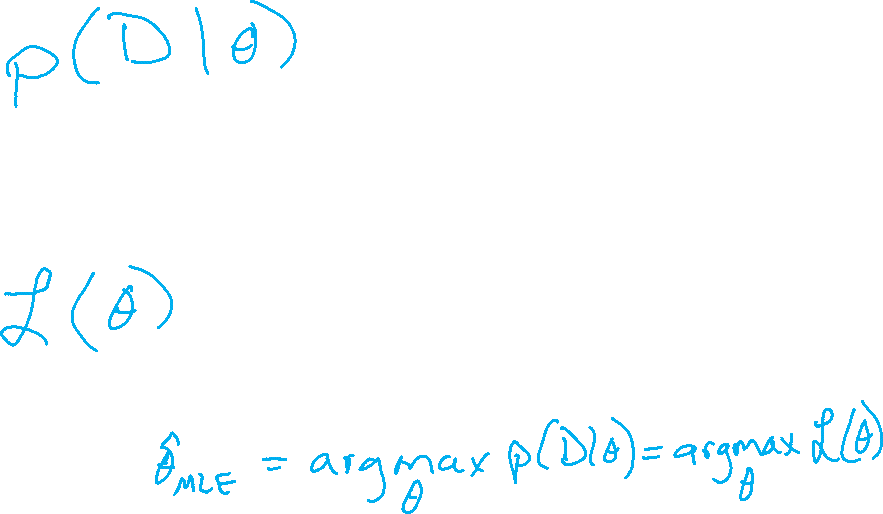 p(D|θ)
ℒ(θ)
θ̂_MLE = argmax_θ p(D|θ) = argmax_θ ℒ(θ)